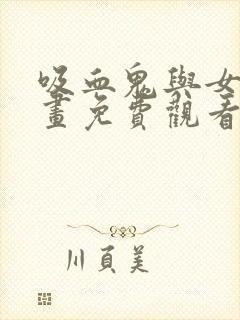 吸血鬼與女
畫免費觀看
川頁美